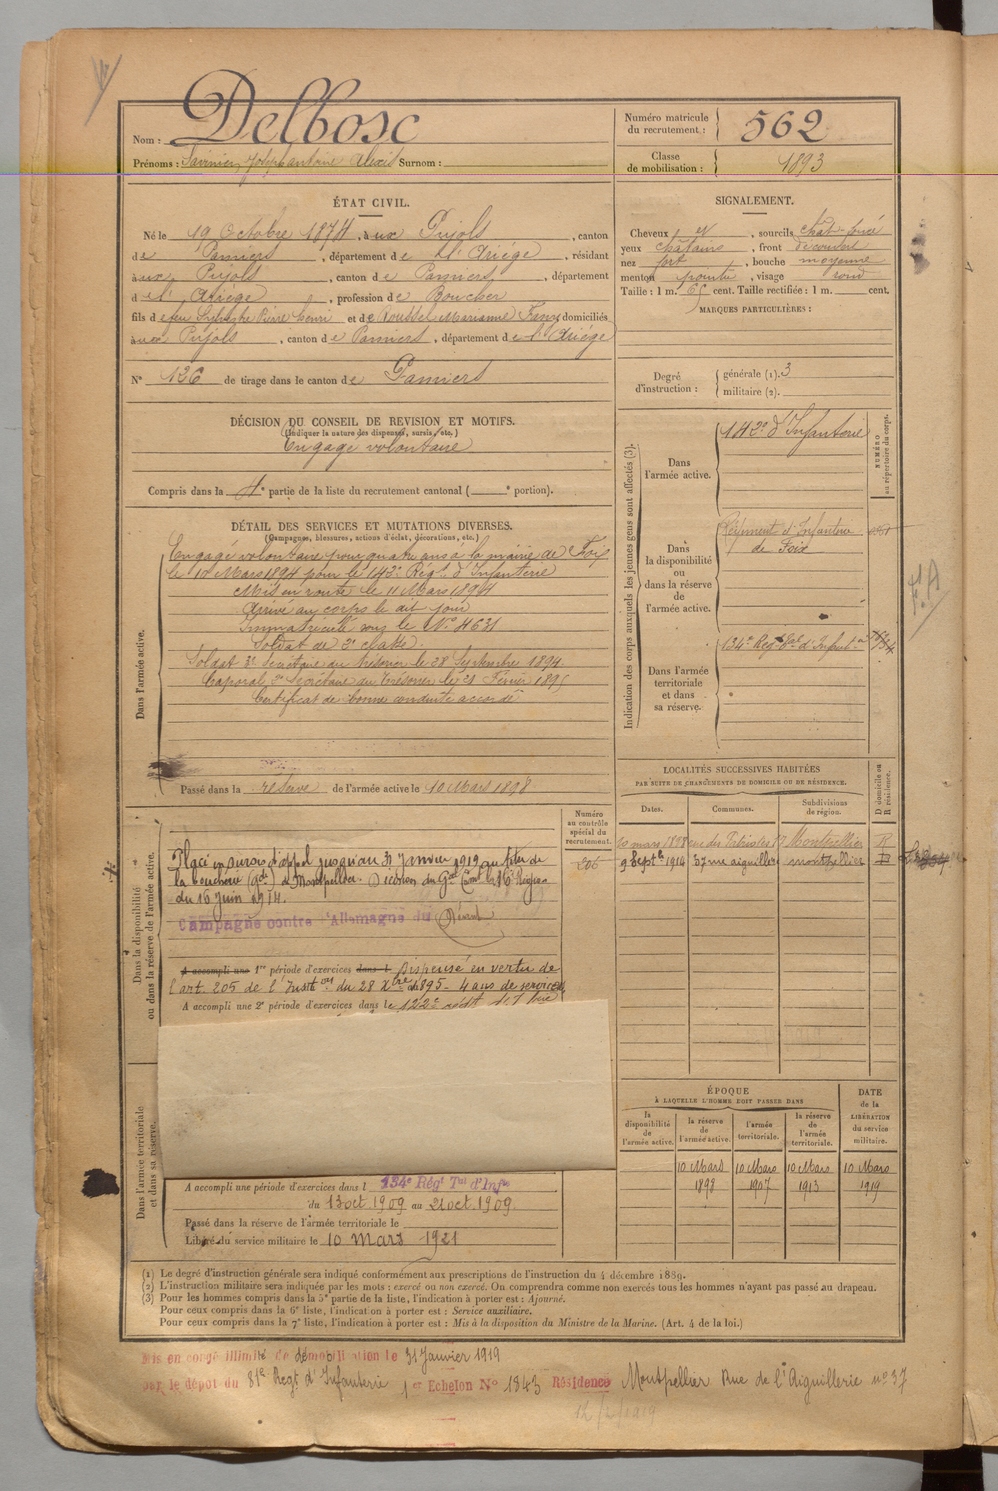 Nom : Delbosc
Prénoms : Joseph Antoine Alexis Surnom :
Numéro matricule du recrutement : 562
Classe de mobilisation : 1893
ÉTAT CIVIL.
Né le 19 Octobre 1874, à aux Pujols, canton
de Pamiers, département de l'Ariège, résidant
à aux Pujols, canton de Pamiers, département
de l'Ariège, profession de Boucher
fils de feu Sylvestre Pierre Henri et de Roussel Marianne domiciliés
à aux Pujols, canton de Pamiers, département de l'Ariège
N° 136 de tirage dans le canton de Pamiers
SIGNALEMENT.
Cheveux et, sourcils chât-foncé
yeux châtains, front découvert
nez fort, bouche moyenne
menton pointu, visage rond
Taille : 1 m. 65 cent. Taille rectifiée : 1 m. cent.
MARQUES PARTICULIÈRES :
Degré d'instruction :
générale (1). 3
militaire (2).
DÉCISION DU CONSEIL DE REVISION ET MOTIFS.
(Indiquer la nature des dispenses, sursis, etc.)
Engagé volontaire
Compris dans la 4e partie de la liste du recrutement cantonal ( e portion).
DÉTAIL DES SERVICES ET MUTATIONS DIVERSES.
(Campagnes, blessures, actions d'éclat, décorations, etc.)
Dans l'armée active.
Engagé volontaire pour quatre ans à la mairie de Foix
le 10 Mars 1894 pour le 142e Régt d'Infanterie
Mis en route le 11 Mars 1894
Arrivé au corps le dit jour
Immatriculé sous le N° 4631
Soldat de 2e classe.
Soldat 3e Secrétaire du trésorier le 28 Septembre 1894.
Caporal 2e Secrétaire du trésorier le 21 Février 1895
Certificat de bonne conduite accordé
Passé dans la réserve de l'armée active le 10 Mars 1898
Indication des corps auxquels les jeunes gens sont affectés (3).
NUMÉRO au répertoire du corps.
Dans l'armée active.
142e d'Infanterie
Dans la disponibilité ou dans la réserve de l'armée active.
Régiment d'Infanterie
de Foix
Dans l'armée territoriale et dans sa réserve.
134e Régt d'Infie
F.A
LOCALITÉS SUCCESSIVES HABITÉES
PAR SUITE DE CHANGEMENTS DE DOMICILE OU DE RÉSIDENCE.
Dates. Communes. Subdivisions de région. D domicile ou R résidence.
10 mars 1898 rue des Patriotes 17 Montpellier R
9 Septe 1914 37 rue aiguillerie montpellier D
Dans la disponibilité ou dans la réserve de l'armée active.
Numéro au contrôle spécial du recrutement.
206
Placé en sursis d'appel jusqu'au 31 Janvier 1919 au titre de
la boucherie (gde) à Montpellier. Décision du Gal Comt la 16e Région
du 16 Juin 1914.
Campagne contre l'Allemagne du Néant
A accompli une 1re période d'exercices dans l Dispensé en vertu de
l'art. 205 de l'Instton du 28 Xbre 1895 - 4 ans de service
A accompli une 2e période d'exercices dans le
Dans l'armée territoriale et dans sa réserve.
A accompli une période d'exercices dans l 134e Régt Tal d'Infie
du 13 oct 1909 au 21 oct 1909.
Passé dans la réserve de l'armée territoriale le
Libéré du service militaire le 10 mars 1921
ÉPOQUE
À LAQUELLE L'HOMME DOIT PASSER DANS
DATE de la LIBÉRATION du service militaire.
la disponibilité de l'armée active. la réserve de l'armée active. l'armée territoriale. la réserve de l'armée territoriale.
10 Mars 10 Mars 10 Mars 10 Mars
1898 1907 1913 1919
(1) Le degré d'instruction générale sera indiqué conformément aux prescriptions de l'instruction du 4 décembre 1889.
(2) L'instruction militaire sera indiquée par les mots : exercé ou non exercé. On comprendra comme non exercés tous les hommes n'ayant pas passé au drapeau.
(3) Pour les hommes compris dans la 5e partie de la liste, l'indication à porter est : Ajourné.
Pour ceux compris dans la 6e liste, l'indication à porter est : Service auxiliaire.
Pour ceux compris dans la 7e liste, l'indication à porter est : Mis à la disposition du Ministre de la Marine. (Art. 4 de la loi.)
Mis en congé illimité de démobilisation le 31 Janvier 1919
par le dépôt du 81e Regt d'Infanterie 1er Echelon N° 1843 Résidence Montpellier Rue de l'Aiguillerie n° 37
12/2/1919